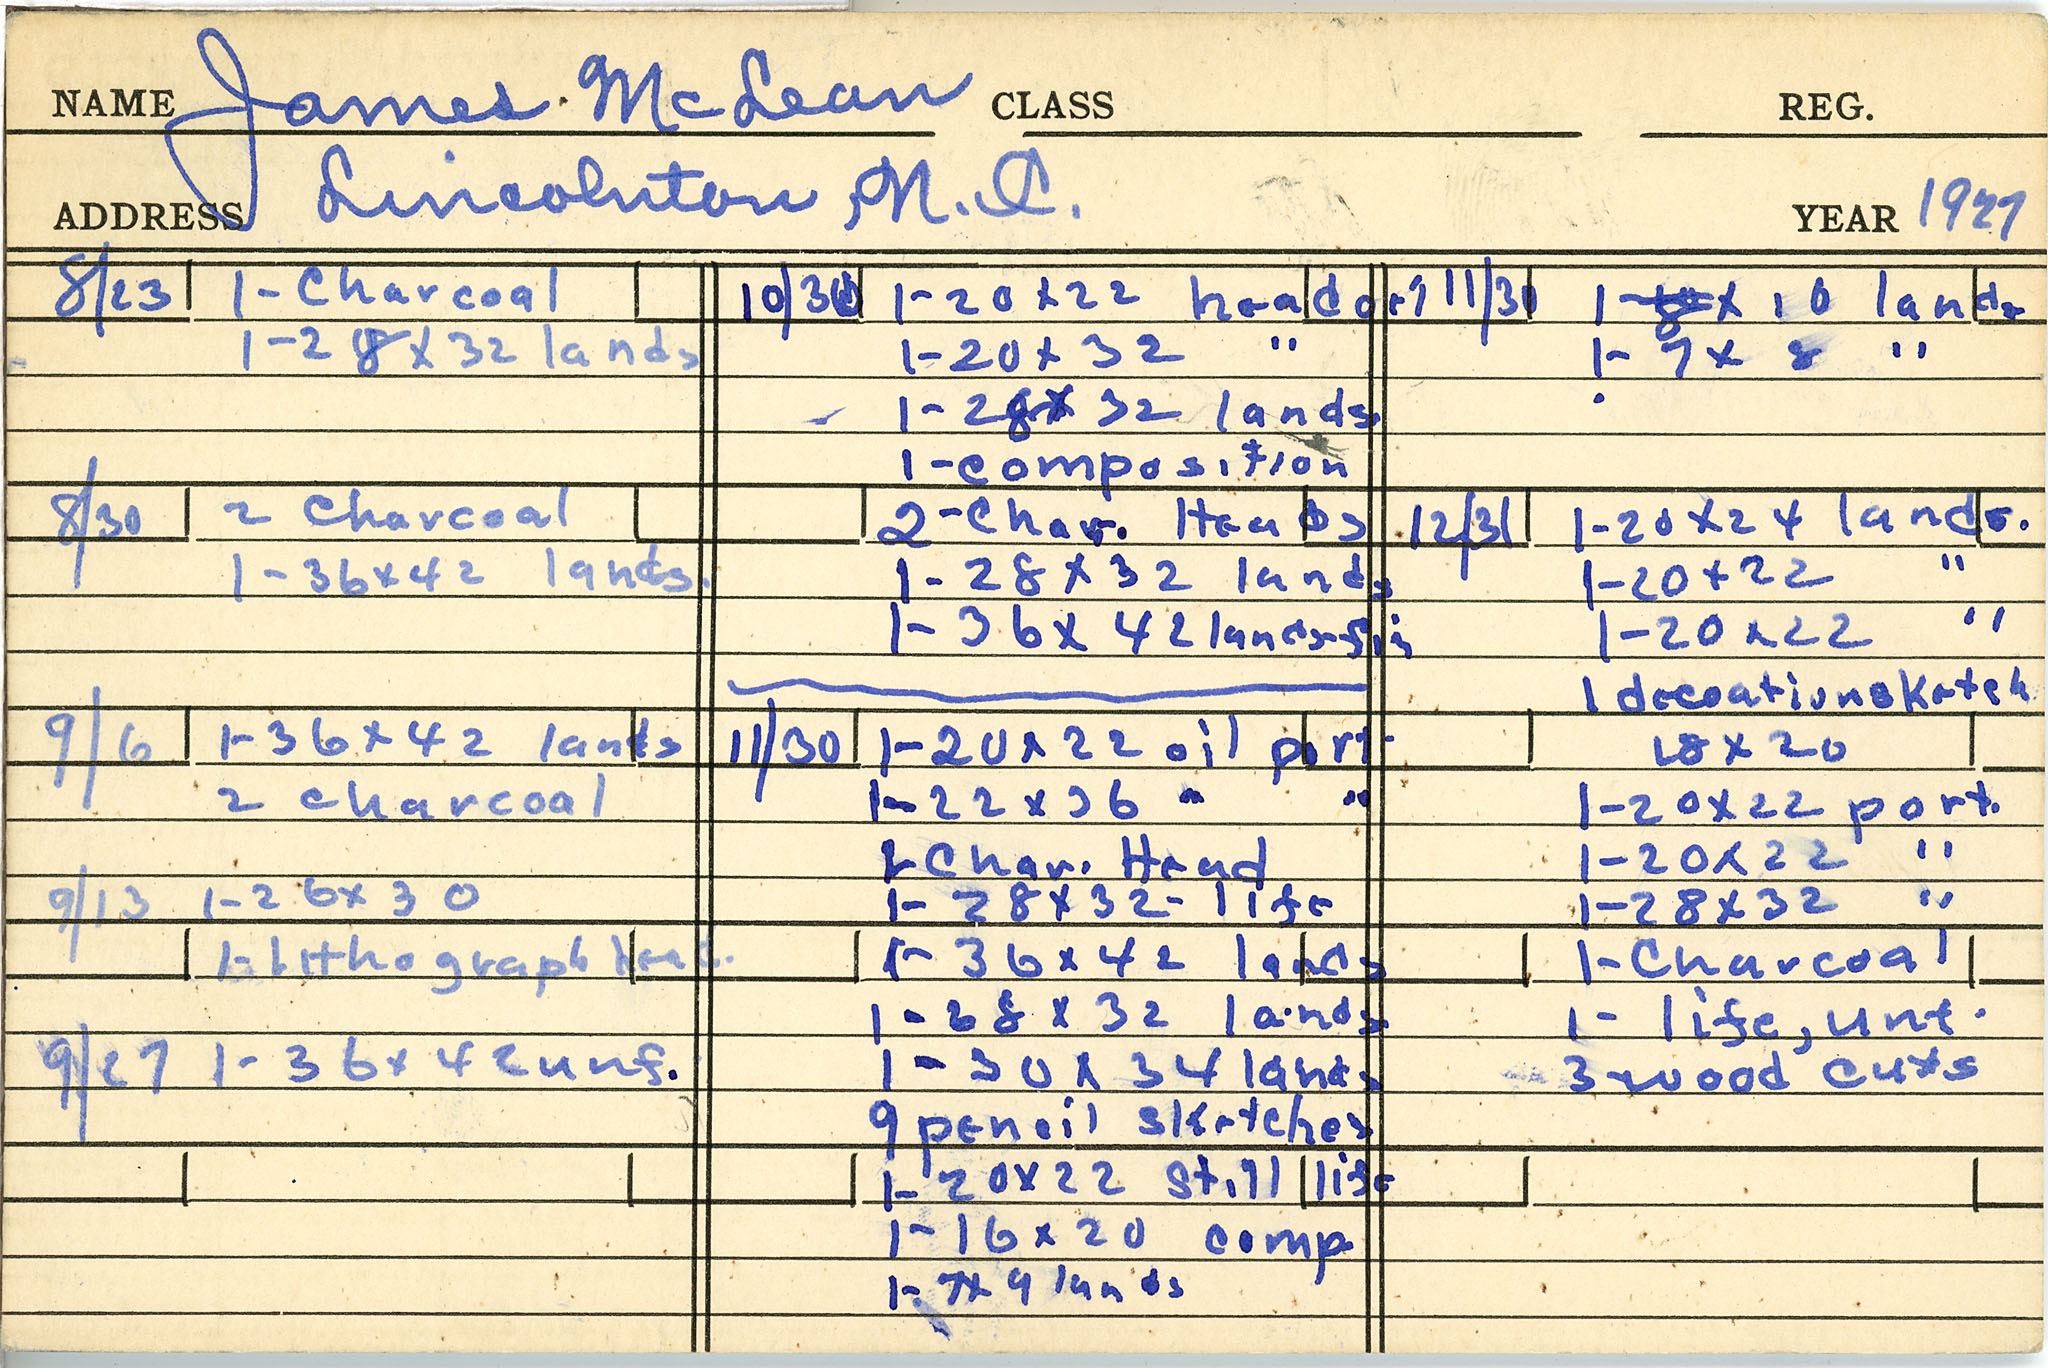 NAME James McLean CLASS REG.
ADDRESS Lincolnton, N.C. YEAR 1927
8/23 1-Charcoal
1-28x32 lands
8/30 2 Charcoal
1-36x42 lands.
9/6 1-36x42 lands
2 charcoal
9/13 1-26x30
1-lithograph Head.
9/27 1-36x42 unf.
10/30 1-20x22 head
1-20x32 "
1-28x32 lands.
1-composition
2-Char. Heads
1-28x32 lands
1-36x42 lands-
11/30 1-20x22 oil port
1-22x36 " "
Char. Head
1-28x32- life
1-36x42 lands
1-28x32 lands
1-30x34 lands
9 pencil sketches
1-20x22 still life
1-16x20 comp
1-7x9 lands
11/30 1-8x10 lands
1-7x8 "
12/31 1-20x24 lands.
1-20x22 "
1-20x22 "
1 decoation sketch
18x20
1-20x22 port.
1-20x22 "
1-28x32 "
1-Charcoal
1- life, unf.
3 wood cuts